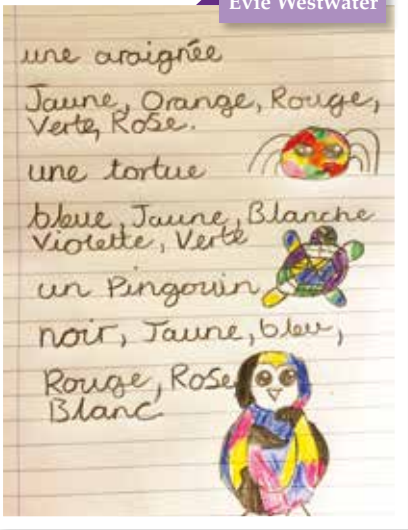 Evie Westwater
une araignée
Jaune, Orange, Rouge,
Verte, Rose.
une tortue
bleue, Jaune, Blanche
Violette, Verte
un Pingouin
noir, Jaune, bleu,
Rouge, Rose
Blanc